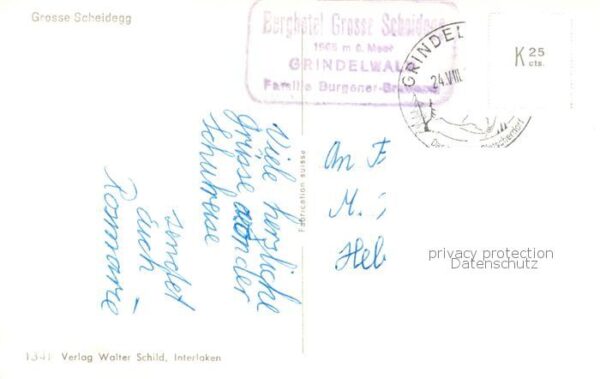 Grosse Scheidegg
Berghotel Grosse Scheidegg
1965 m ü. Meer
GRINDELWALD
Familie Burgener-
GRINDEL
24.VIII.
K 25
cts.
Viele herzliche
Grüsse von der
Schulreise
sendet
euch
Rosmarie
Fabrication suisse
An F
M.
Heb
privacy protection
Datenschutz
1341 Verlag Walter Schild, Interlaken